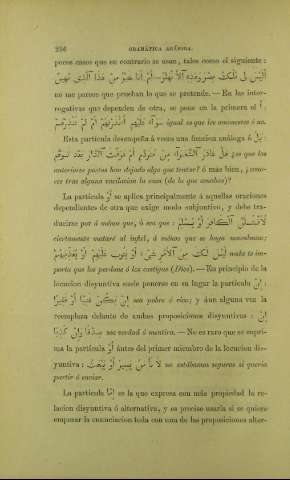 256 GRAMÁTICA ARÁBIGA.
pocos casos que en contrario se usan, tales como el siguiente:
أَلَيْسَ لِي مُلْكُ مِصْرَ وَهَذِهِ ٱلْأَنْهَارُ — أَمْ أَنَا خَيْرٌ مِنْ هَذَا ٱلَّذِي مَهِينٌ
no me parece que prueban lo que se pretende.—En las inter-
rogativas que dependen de otra, se pone en la primera el أ :
سَوَآءٌ عَلَيْهِمْ أَأَنْذَرْتَهُمْ أَمْ لَمْ تُنْذِرْهُمْ igual es que les amonestes ó no.
Esta partícula desempeña á veces una funcion análoga á بَلْ :
هَلْ غَادَرَ ٱلشُّعَرَآءُ مِنْ مُتَرَدَّمِ أَمْ عَرَفْتَ ٱلدَّارَ بَعْدَ تَوَهُّمِ ¿es que los
anteriores poetas han dejado algo que tentar? ó más bien, ¿cono-
ces tras alguna vacilacion la casa (de la que amabas)?
La partícula أَوْ se aplica principalmente á aquellas oraciones
dependientes de otra que exige modo subjuntivo, y debe tra-
ducirse por á ménos que, ó sea que : لَأَقْتُلَنَّ ٱلْكَافِرَ أَوْ يُسْلِمَ
ciertamente mataré al infiel, á ménos que se haga musulman;
لَيْسَ لَكَ مِنَ ٱلْأَمْرِ شَيْءٌ أَوْ يَتُوبَ عَلَيْهِمْ أَوْ يُعَذِّبَهُمْ nada te im-
porta que los perdone ó los castigue (Dios).—En principio de la
locucion disyuntiva suele ponerse en su lugar la partícula إِنْ :
إِنْ يَكُنْ غَنِيًّا أَوْ فَقِيرًا sea pobre ó rico; y áun alguna vez la
reemplaza delante de ambas proposiciones disyuntivas : إِنْ
صِدْقًا وَإِنْ كَذِبًا sea verdad ó mentira.—No es raro que se supri-
ma la partícula أَوْ ántes del primer miembro de la locucion dis-
yuntiva : لَا نَأْمَنُ يَسِيرُ أَوْ يَبْعَثُ no estábamos seguros si queria
partir ó enviar.
La partícula إِمَّا es la que expresa con más propiedad la re-
lacion disyuntiva ó alternativa, y es preciso usarla si se quiere
empezar la enunciacion toda con una de las proposiciones alter-